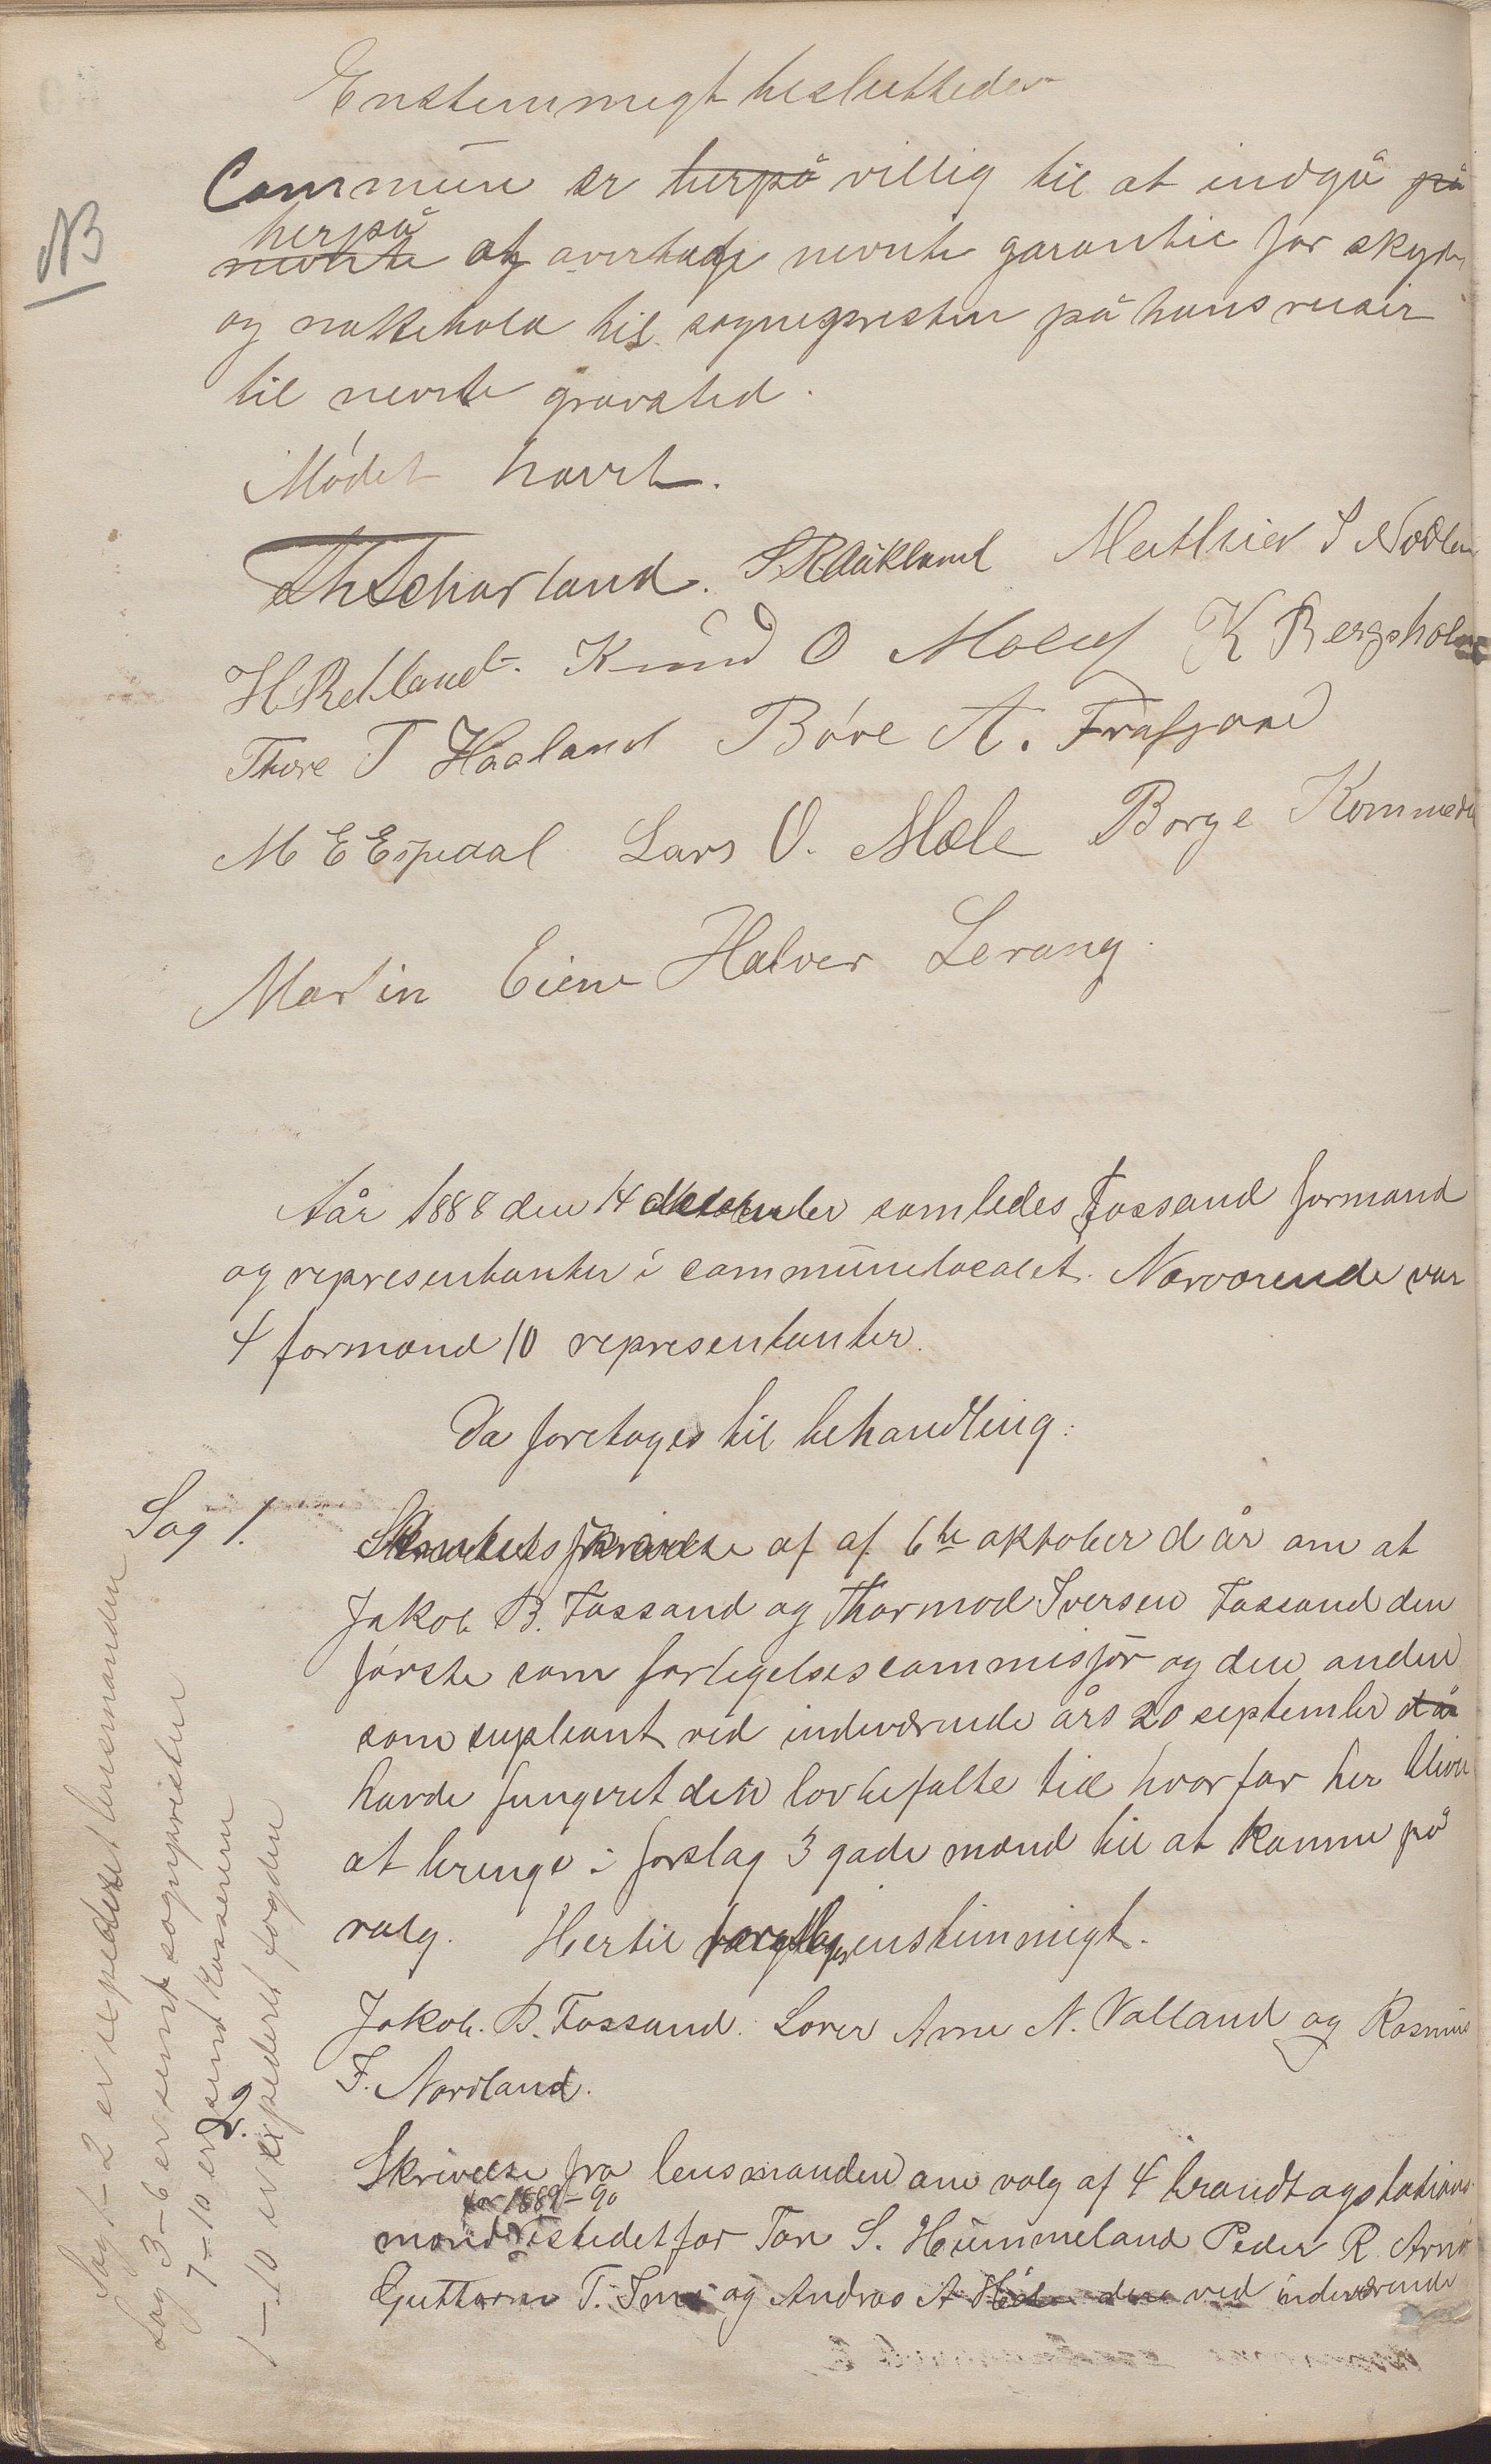 Enstemmigt besluttedes
Commune er herpå villig til at indgå på
NB
herpå
nevnte at overtage nevnte garantie for skyds
og nattehold til sogneprestin på hans reiser
til nevnte gravsted.
Mödet hævet.
Th Scharland. S. R. Aukland Mathias S Nodlan
H. Retland. Knud O Mæle K Bergsholm
Thore T Haaland Böre A. Frafjord
M E Espedal Lars O. Mæle Borge Kommedal
Martin Eiene Halvor Lerang.
Aår 1888 den 14 samledes Fossand formænd
og representanter i communelocalet. Nærværende var
4 formænd 10 representanter.
Da foretoges til behandling:
Sag 1.
af af 6te oktober d år om at
Jakob B. Fossand og Thormod Iversen Fossand den
förste som forligelsescommisjör og den anden
som supleant ved indeværende års 20 september då
havde fungeret den lovbefalte tid hvorfor her bliver
at bringe i forslag 3 gode mænd til at komme på
valg. Hertil enstimmigt.
Jakob. B. Fossand. Lærer Arne N. Valland og Rasmus
F. Nordland.
2.
Skrivelse fra lensmanden om valg af 4 brandtagstations
for 1889-90
mænd istedetfor Tore S. Hummeland Peder R. Arnö
Guttorm T. Ims og Andras A ved indeværende
Sag 1-2 er expederet lensmanden
Sag 3-6 er sent sognpresten
7-10 er sent kassereren
1-10 er expederet fogden